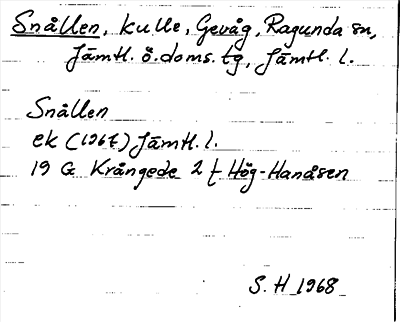 Snållen, kulle, Gevåg, Ragunda sn,
Jämtl. ö. doms. tg, Jämtl. l.
Snållen
ek (1967) Jämtl. l.
19 G Krångede 2 f Hög-Handsen
S. H 1968